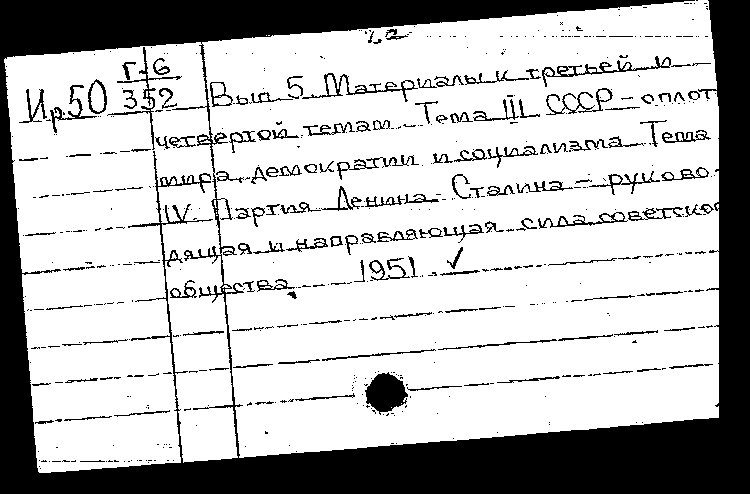 Г-6
Ир50 352 Вып. 5. Материалы к третьей и
четвертой темам. Тема III. СССР - оплот
мира, демократии и социализма. Тема
IV Партия Ленина - Сталина - руково-
дящая и направляющая сила советско
общества. 1951. ✓